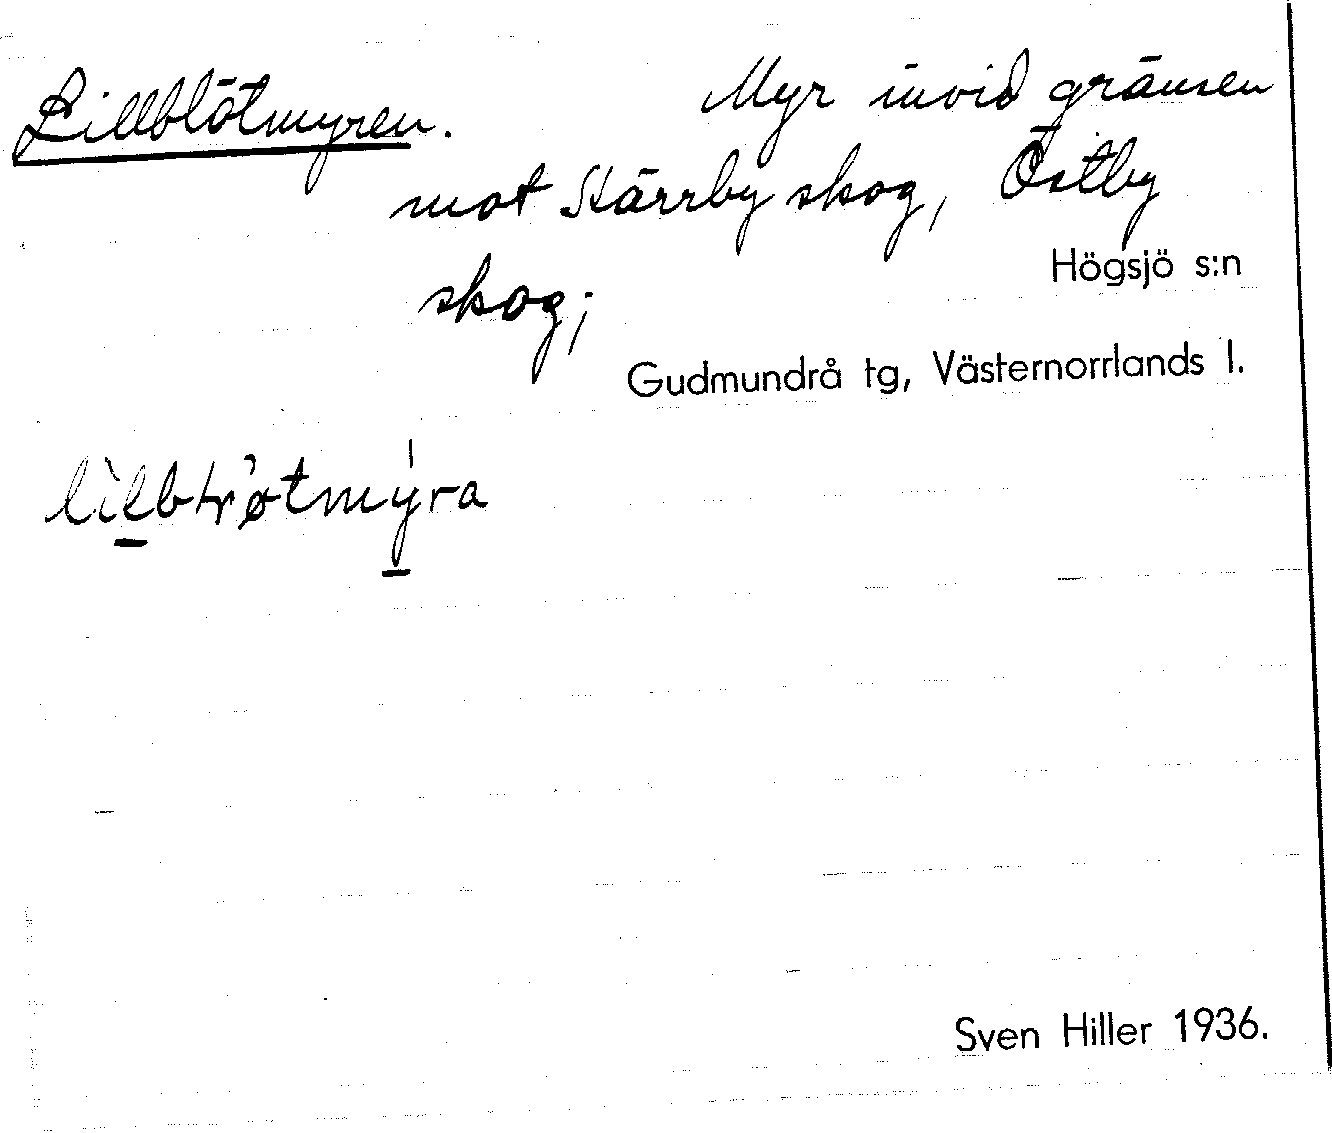 Lillblötmyren. Myr invid gränsen
mot Skärrby skog, Östby
skog;
Högsjö s:n
Gudmundrå tg, Västernorrlands l.
Sven Hiller 1936.